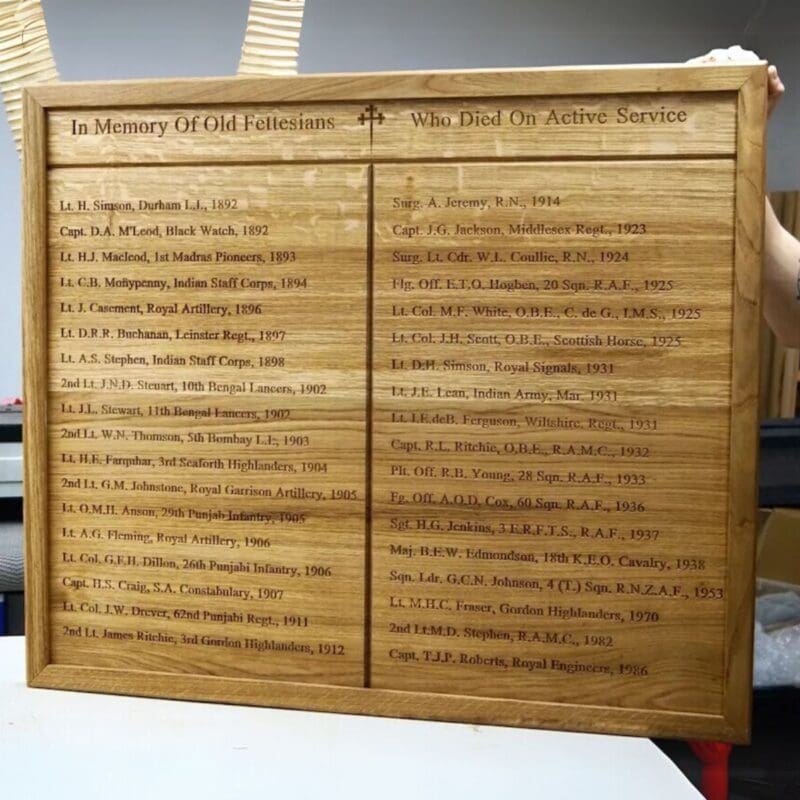 In Memory Of Old Fettesians
Who Died On Active Service
Lt. H. Simson, Durham L.I., 1892
Capt. D.A. M'Leod, Black Watch, 1892
Lt. H.J. Macleod, 1st Madras Pioneers, 1893
Lt. C.B. Moñypenny, Indian Staff Corps, 1894
Lt. J. Casement, Royal Artillery, 1896
Lt. D.R.R. Buchanan, Leinster Regt., 1897
Lt. A.S. Stephen, Indian Staff Corps, 1898
2nd Lt. J.N.D. Steuart, 10th Bengal Lancers, 1902
Lt. J.L. Stewart, 11th Bengal Lancers, 1902
2nd Lt. W.N. Thomson, 5th Bombay L.I., 1903
Lt. H.E. Farquhar, 3rd Seaforth Highlanders, 1904
2nd Lt. G.M. Johnstone, Royal Garrison Artillery, 1905
Lt. O.M.H. Anson, 29th Punjab Infantry, 1905
Lt. A.G. Fleming, Royal Artillery, 1906
Lt. Col. G.F.H. Dillon, 26th Punjabi Infantry, 1906
Capt. H.S. Craig, S.A. Constabulary, 1907
Lt. Col. J.W. Drever, 62nd Punjabi Regt., 1911
2nd Lt. James Ritchie, 3rd Gordon Highlanders, 1912
Surg. A. Jeremy, R.N., 1914
Capt. J.G. Jackson, Middlesex Regt., 1923
Surg. Lt. Cdr. W.L. Coullie, R.N., 1924
Flg. Off. E.T.O. Hogben, 20 Sqn. R.A.F., 1925
Lt. Col. M.F. White, O.B.E., C. de G., I.M.S., 1925
Lt. Col. J.H. Scott, O.B.E., Scottish Horse, 1925
Lt. D.H. Simson, Royal Signals, 1931
Lt. J.E. Lean, Indian Army, Mar. 1931
Lt. I.E.deB. Ferguson, Wiltshire. Regt., 1931
Capt. R.L. Ritchie, O.B.E., R.A.M.C., 1932
Plt. Off. R.B. Young, 28 Sqn. R.A.F., 1933
Fg. Off. A.O.D. Cox, 60 Sqn. R.A.F., 1936
Sgt. H.G. Jenkins, 3 E.R.F.T.S., R.A.F., 1937
Maj. B.E.W. Edmondson, 18th K.E.O. Cavalry, 1938
Sqn. Ldr. G.C.N. Johnson, 4 (T.) Sqn. R.N.Z.A.F., 1953
Lt. M.H.C. Fraser, Gordon Highlanders, 1970
2nd Lt.M.D. Stephen, R.A.M.C., 1982
Capt. T.J.P. Roberts, Royal Engineers, 1986